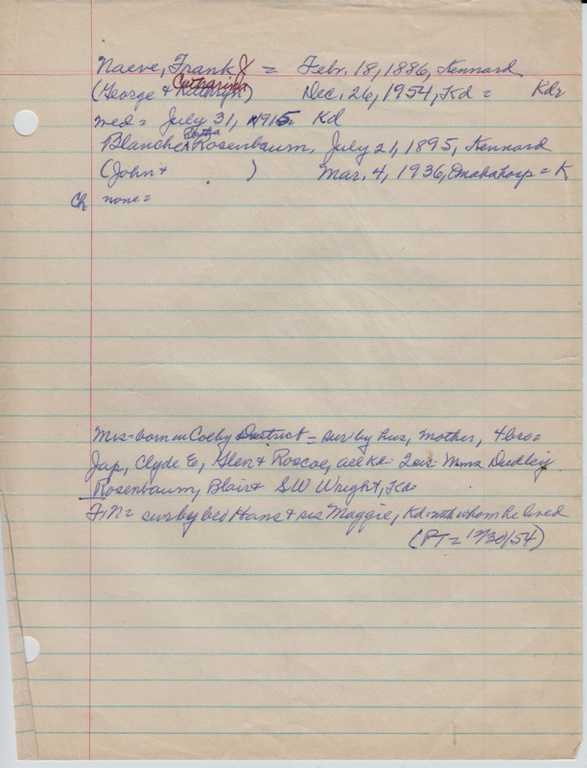 Naeve, Frank J = Febr. 18, 1886, Kennard
Catharina
(George & Kathryn) Dec. 26, 1954, Kd = Kdr
wed = July 31, 1915 Kd
Blanche Rosenbaum, July 21, 1895, Kennard
(John + ) Mar. 4, 1936, Omahahosp = K
Ch none =
Mrs-born in Colby District = sur by hus, mother, 4 bro =
Jap, Clyde E, Glen + Roscoe, all Kd. 2 sis = Mmes Dudley
Rosenbaum, Blair + SW Wright, Kd
FN = sur by bro Hans + sis Maggie, Kd with whom he lived
(PT = 12/30/54)